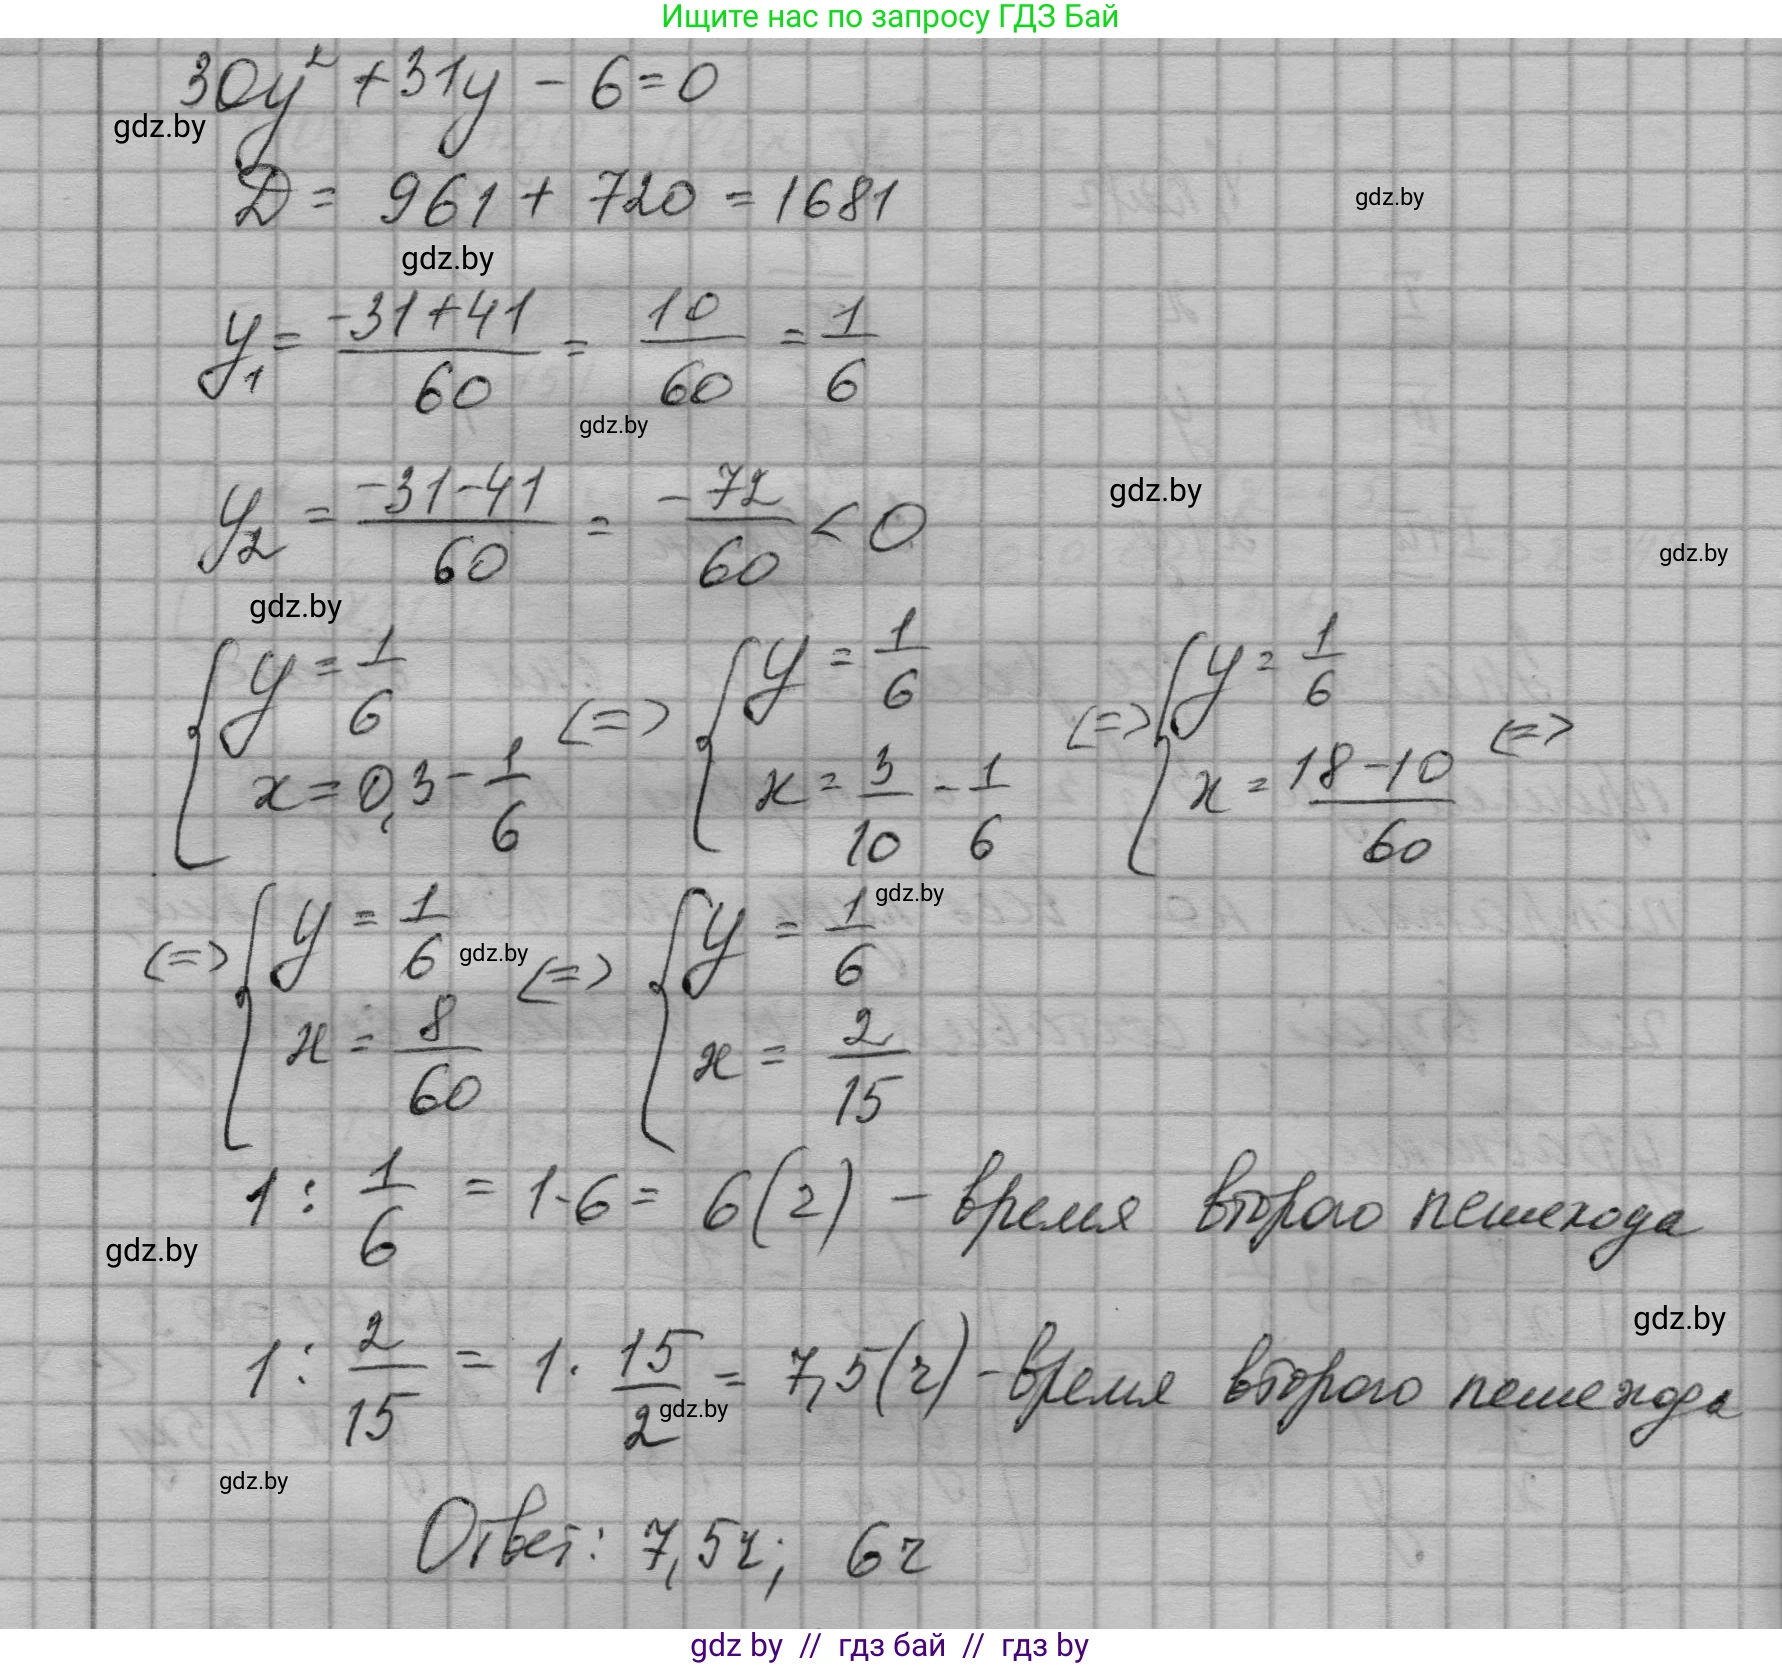 Ищите нас по запросу ГДЗ Бай
30y² + 31y - 6 = 0
gdz.by
D = 961 + 720 = 1681
gdz.by
gdz.by
y₁ = (-31+41)/60 = 10/60 = 1/6
gdz.by
y₂ = (-31-41)/60 = -72/60 < 0
gdz.by
gdz.by
gdz.by
{ y = 1/6 (=) { y = 1/6 (=) { y = 1/6 (=)
x = 0,3 - 1/6 x = 3/10 - 1/6 x = (18-10)/60
gdz.by
(=) { y = 1/6 gdz.by (=) { y = 1/6
x = 8/60 x = 2/15
1 : 1/6 = 1·6 = 6 (ч) - время второго пешехода
gdz.by
gdz.by
1 : 2/15 = 1 · 15/2 = 7,5 (ч) - время второго пешехода
gdz.by
gdz.by
Ответ: 7,5ч; 6ч
gdz by // гдз бай // гдз by